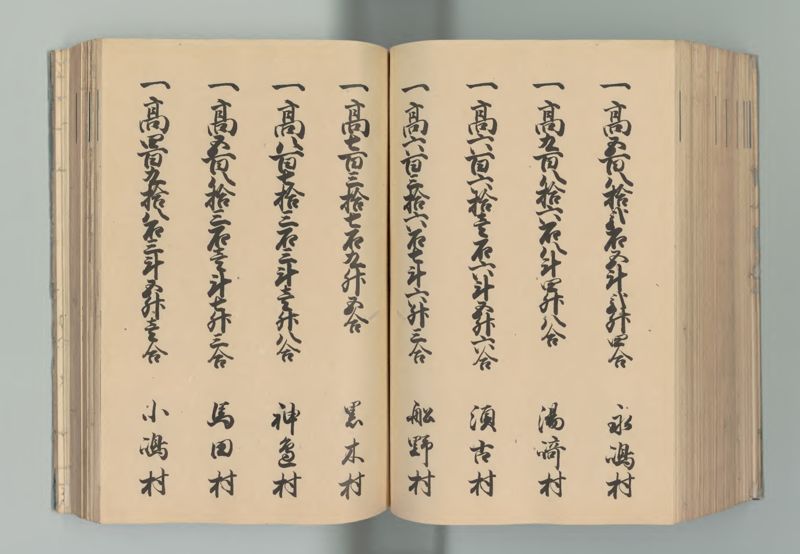 一高五百八拾弐石五斗弐升四合 永嶋村
一高九百八拾六石八斗四升八合 湯﨑村
一高六百六拾壱石六斗五升六合 須古村
一高六百三拾六石七斗六升三合 船野村
一高七百三拾七石九升五合 黒木村
一高八百七拾三石三斗壱升八合 神邉村
一高五百八拾三石壱斗七升三合 馬田村
一高四百九拾八石三斗五升壱合 小嶋村